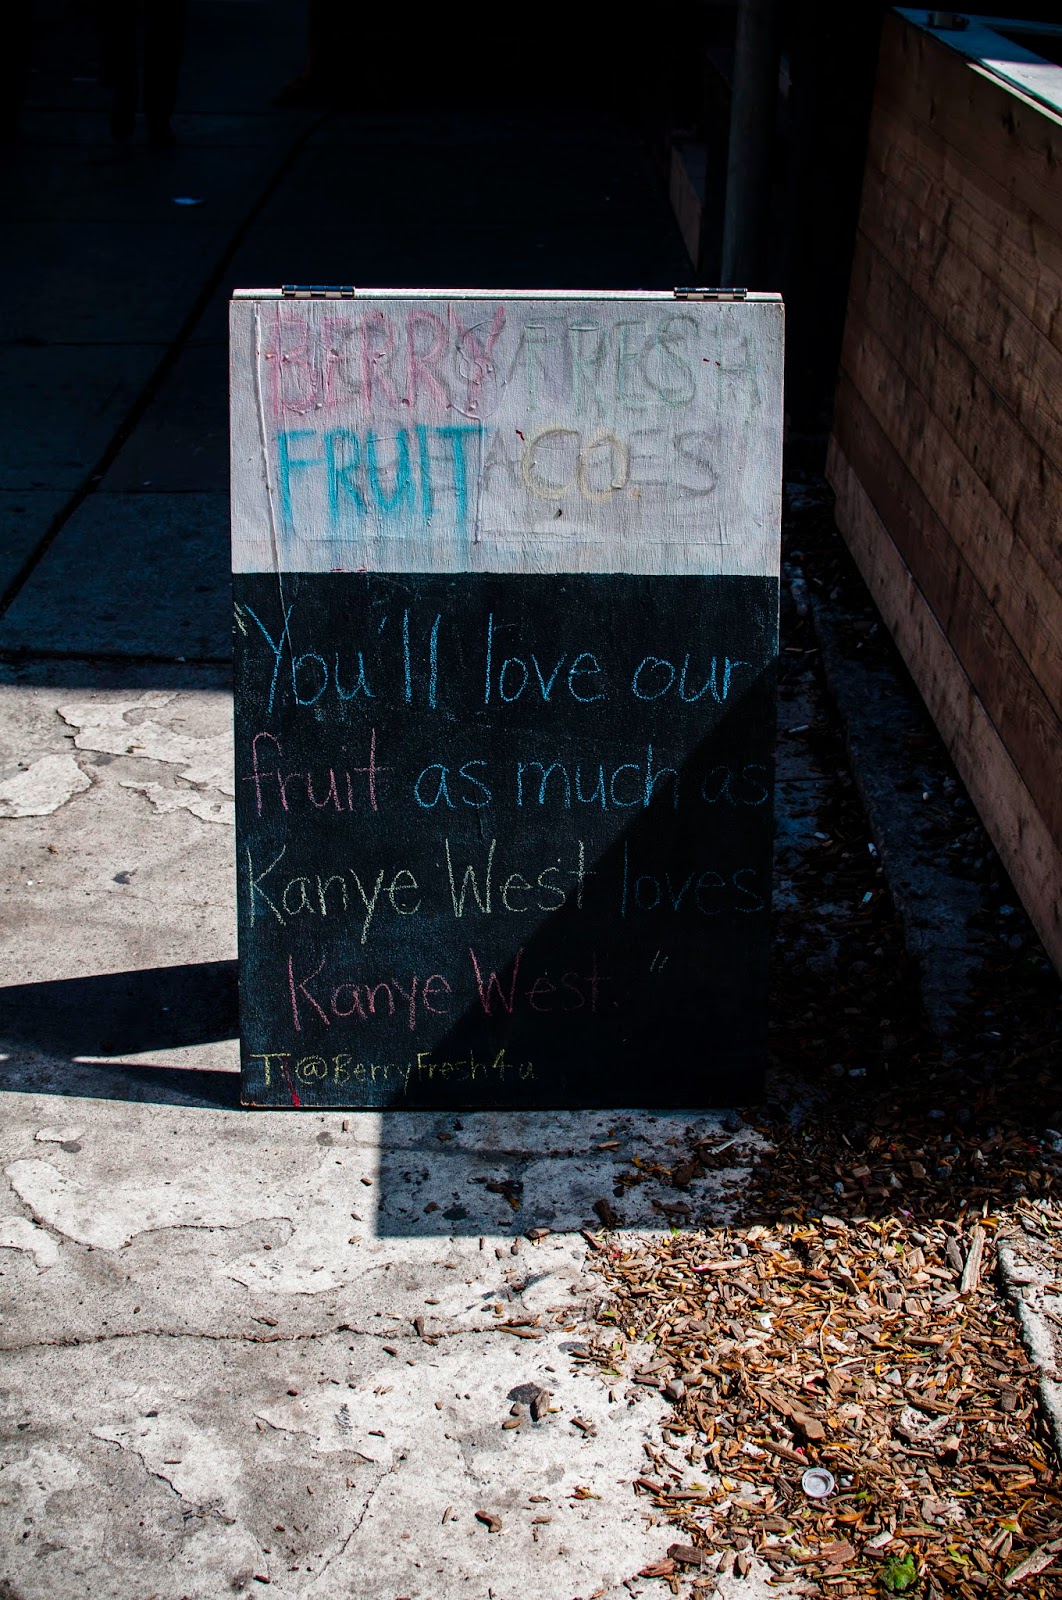 BERRY FRESH
FRUIT CO.
"You'll love our
fruit as much as
Kanye West loves
Kanye West."
T: @BerryFresh4u